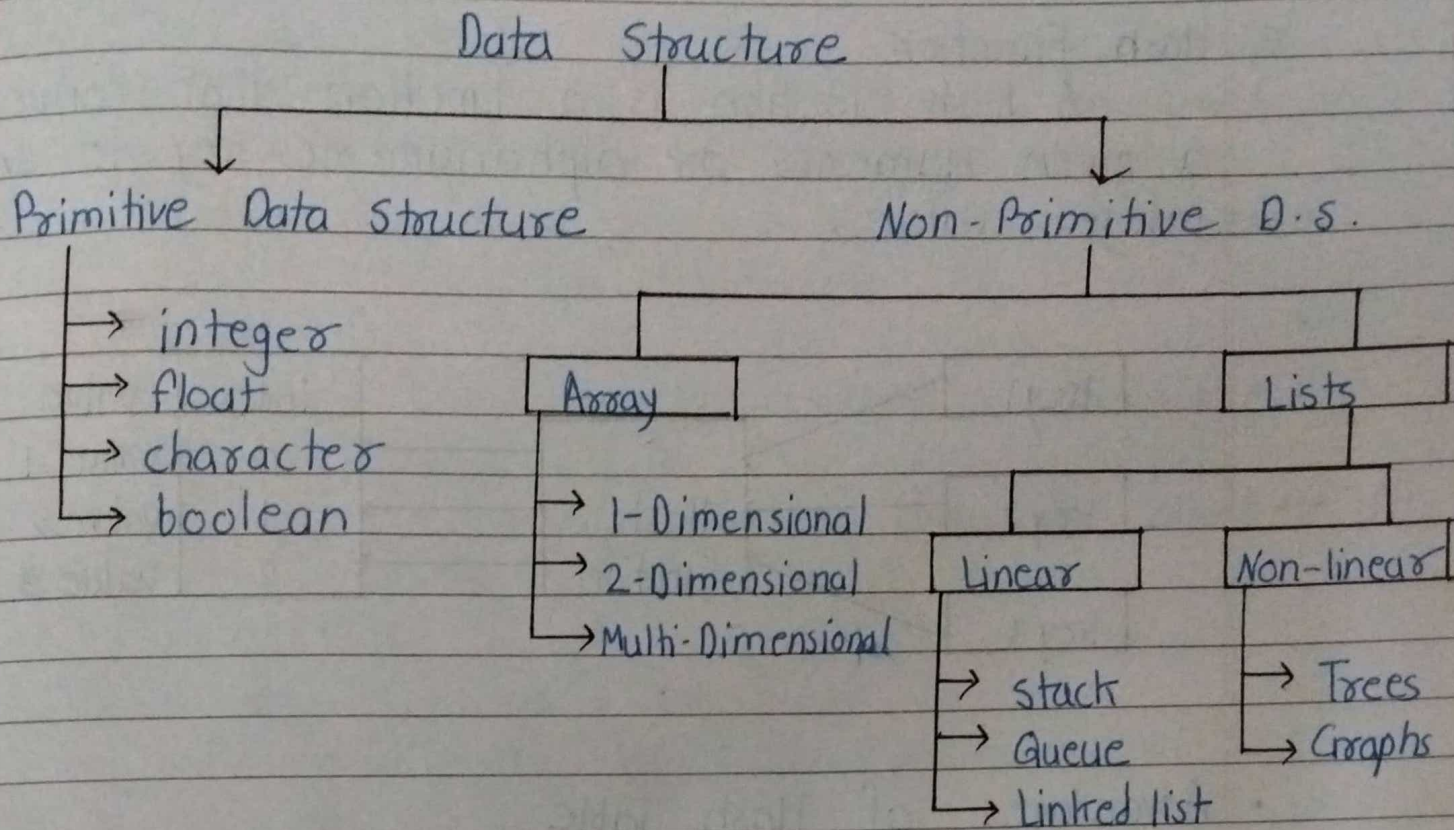 Data Structure
Primitive Data Structure
Non-Primitive D.S.
integer
float
character
boolean
Array
1-Dimensional
2-Dimensional
Multi-Dimensional
Lists
Linear
Stack
Queue
Linked list
Non-linear
Trees
Graphs